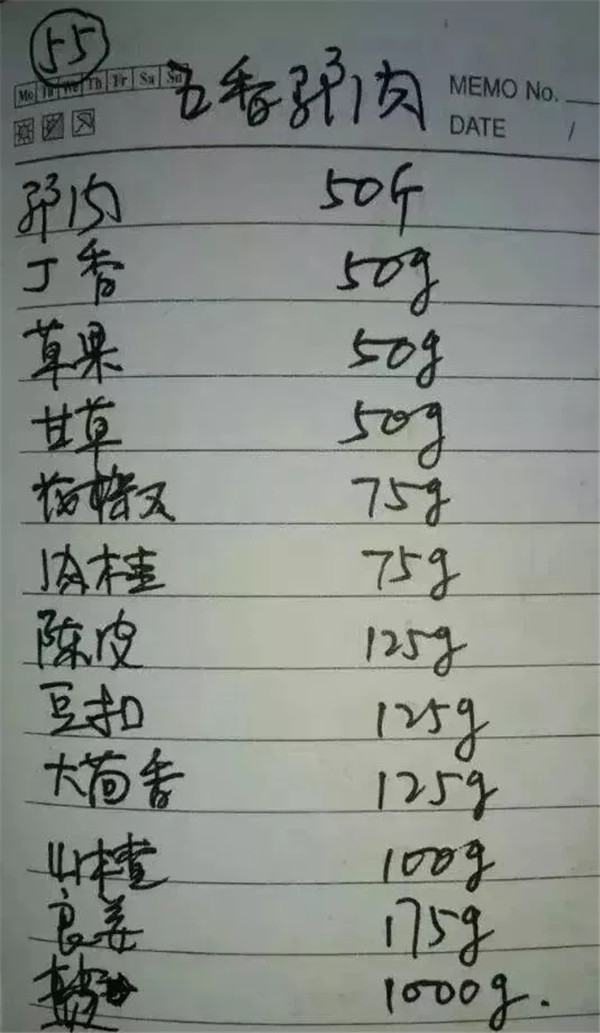 55
Mo Tu We Th Fr Sa Su
五香驴肉
MEMO No.
DATE /
驴肉 50斤
丁香 50g
草果 50g
甘草 50g
75g
肉桂 75g
陈皮 125g
豆扣 125g
大茴香 125g
山楂 100g
良姜 175g
1000g.